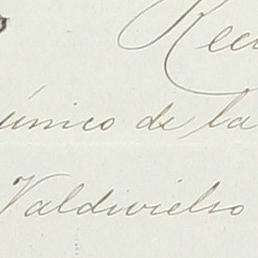 Reci
único de la
Valdivielso